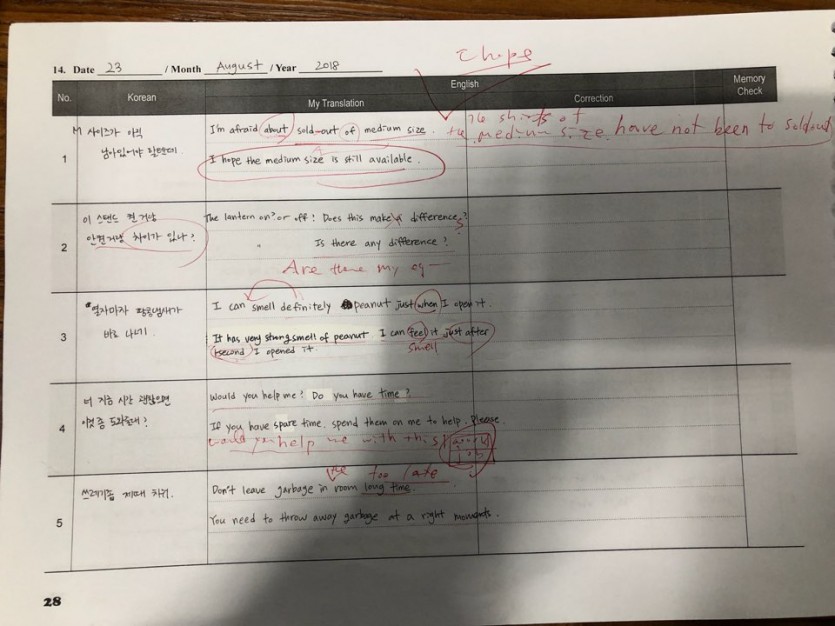 I hope
14. Date 23 / Month August / Year 2018
No.
Korean
English
My Translation
Correction
Memory Check
1
M 사이즈가 아직
남아있어야 할텐데
I'm afraid about sold-out of medium size.
the shirts of
the medium size have not been to soldout
I hope the medium size is still available.
2
이 스탠드 켠거냥
안켠거냥 차이가 있나?
The lantern on? or off? Does this make differences?
" Is there any difference?
Are there any
3
열자마자 땅콩냄새가
바로 나네?
I can smell definitely peanut just when I open it.
It has very strong smell of peanut. I can feel it just after
smell
1second I opened it.
4
너 지금 시간 괜찮으면
이것좀 도와줄래?
Would you help me? Do you have time?
If you have spare time, spend them on me to help. Please.
would you help me with this
5
쓰레기좀 제때 치워.
the too late
Don't leave garbage in room long time.
You need to throw away garbage at a right moments.
28